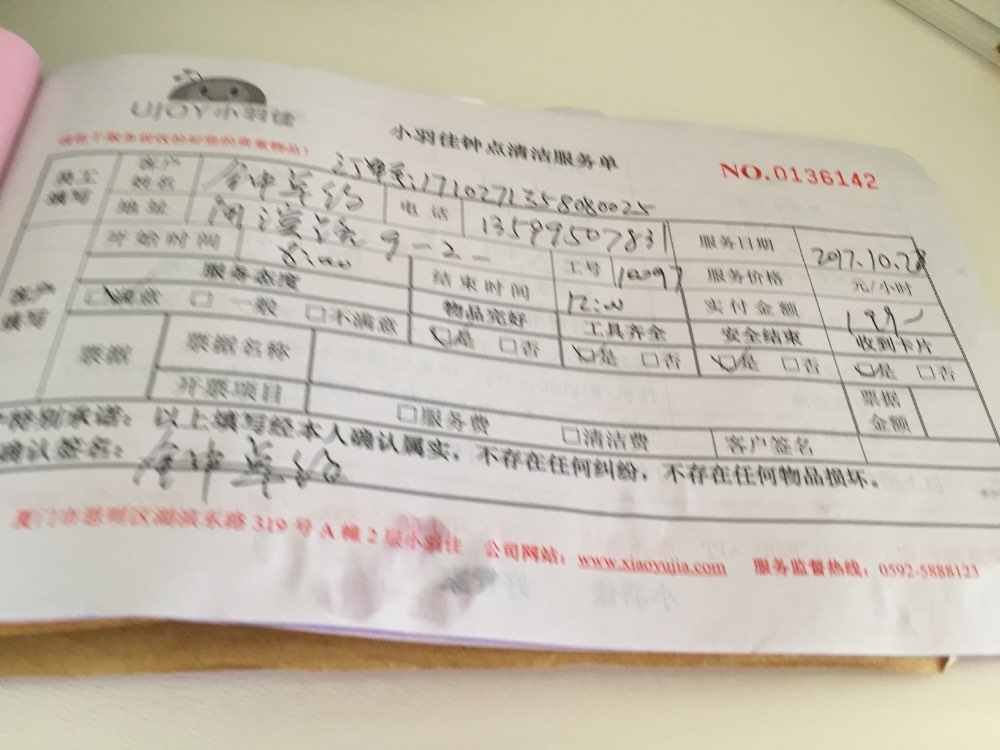 UJOY小羽佳
小羽佳钟点清洁服务单
NO.0136142
员工填写
客户姓名
订单号:1710271358080025
地址
9-2
电话 13599507831
服务日期 2017.10.28
开始时间 8:00
结束时间 12:00
工号
服务价格 元/小时
实付金额
客户填写
服务态度 物品完好 工具齐全 安全结束 收到卡片
□满意 □一般 □不满意 □是 □否 □是 □否 □是 □否 □是 □否
票据 票据名称 票据金额
开票项目 □服务费 □清洁费 客户签名
特别承诺：以上填写经本人确认属实，不存在任何纠纷，不存在任何物品损坏。
确认签名：
厦门市思明区湖滨东路319号A幢2层小羽佳 公司网站：www.xiaoyujia.com 服务监督热线：0592-5888123